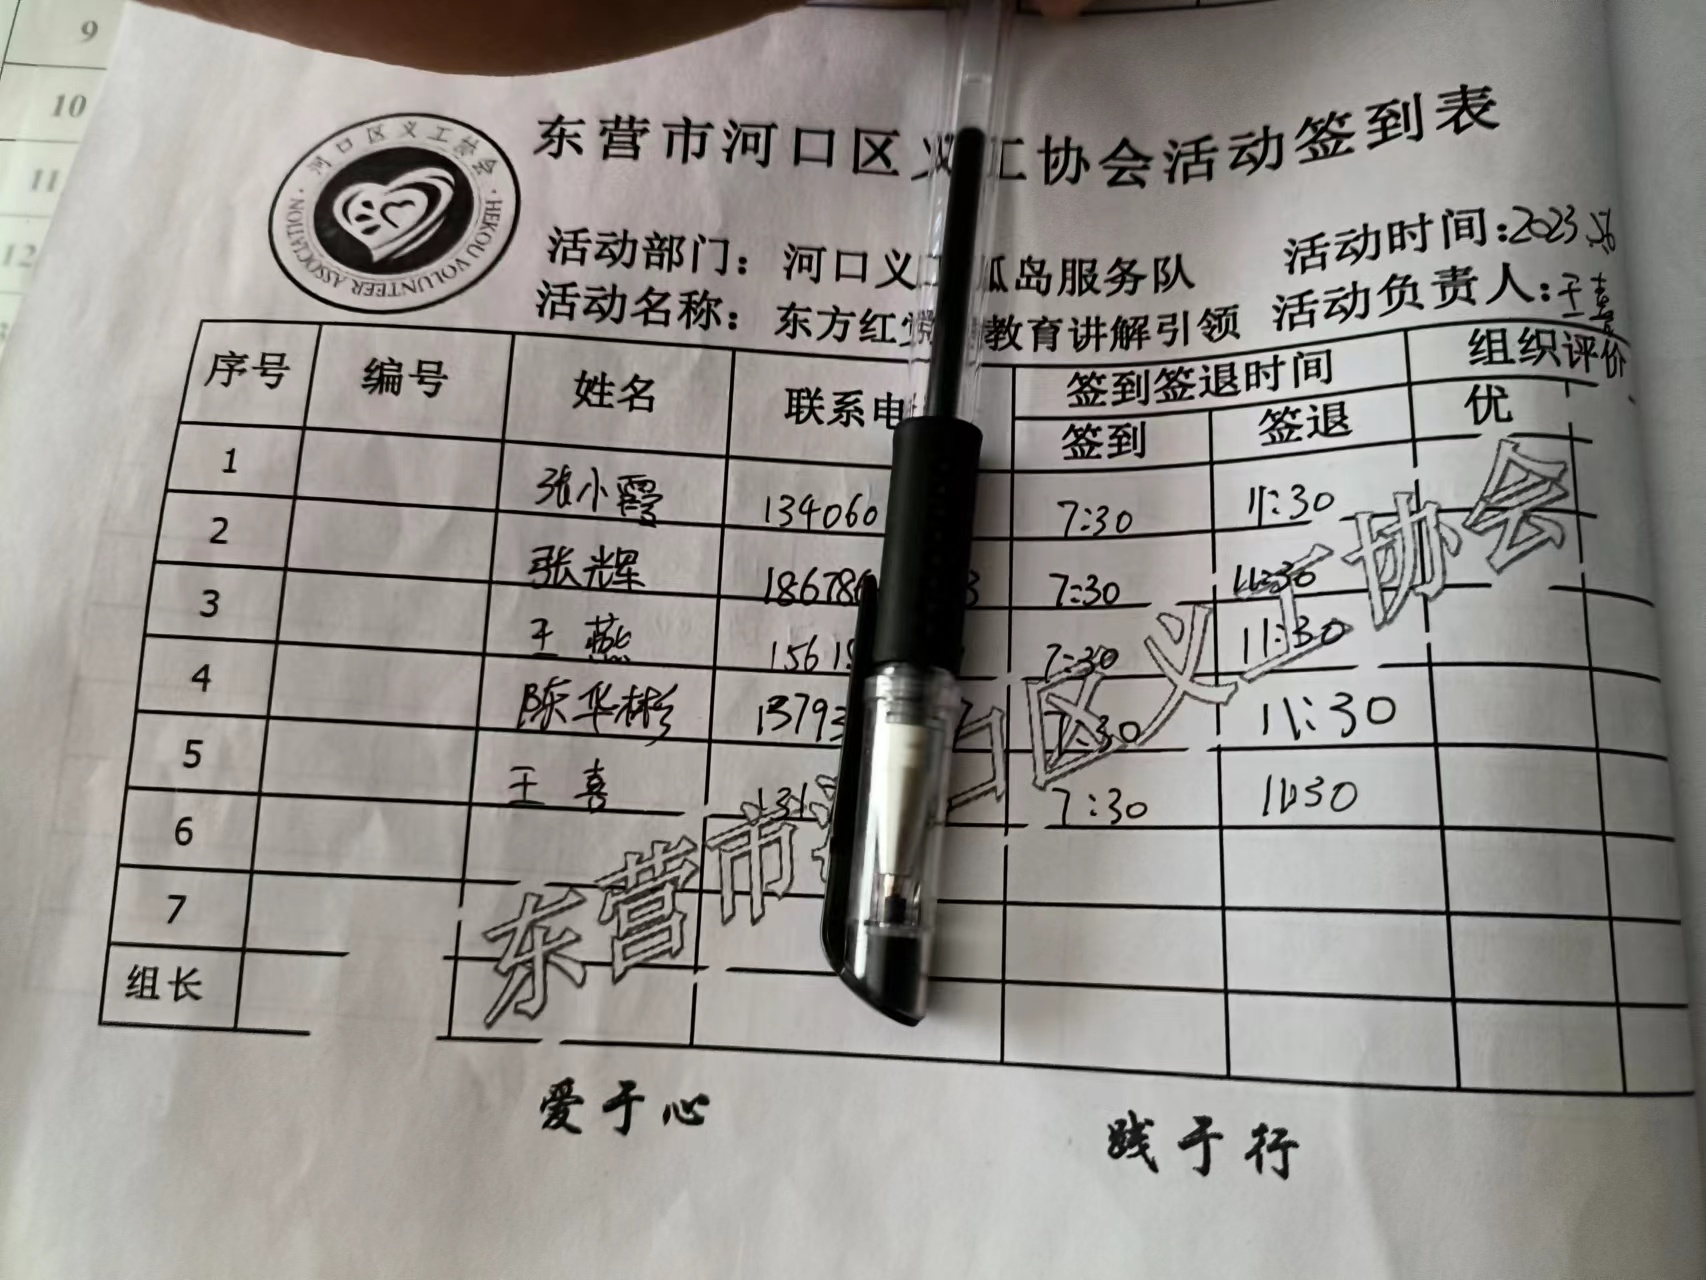 9
10
11
12
东营市河口区义工协会活动签到表
河口区义工协会
HEKOU VOLUNTEER ASSOCIATION
活动部门：河口义 孤岛服务队 活动时间：2023.5.6
活动名称：东方红 教育讲解引领 活动负责人：王喜
序号 编号 姓名 联系电 签到签退时间 组织评价
签到 签退 优
1 张小霞 134060 7:30 11:30
2 张辉 18678 3 7:30 11:30
3 王燕 1561 7:30 11:30
4 陈华彬 1379 7:30 11:30
5 王喜 131 7:30 11:30
6
7
组长
东营市 口区义工协会
爱于心 践于行